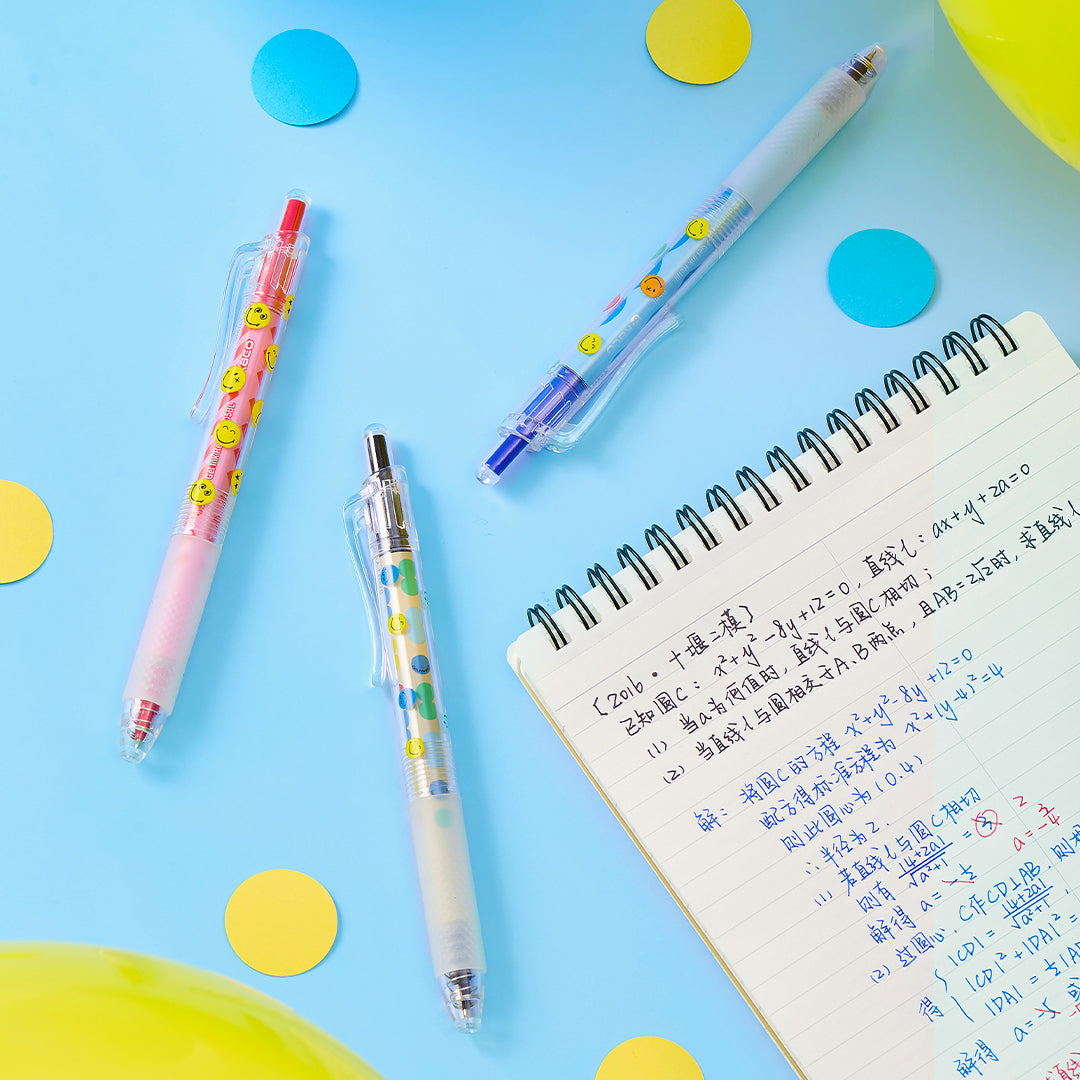 (2016·十堰二模)
已知圆C: x²+y²-8y+12=0, 直线l: ax+y+2a=0
(1) 当a为何值时, 直线l与圆C相切;
(2) 当直线l与圆相交于A、B两点, 且AB=2√2时, 求直线l
解: 将圆C的方程 x²+y²-8y+12=0
配方得标准方程为 x²+(y-4)²=4
则此圆心为(0.4)
∴半径为2.
(1) 若直线l与圆C相切
则有 |4+2a|/√a²+1 = 3 2
解得 a= a=-3/4
(2) 过圆心 C作CD⊥AB, 则
|CD|= |4+2a|/√a²+1,
得 |CD|²+|DA|²=
|DA|=½|A
解得 a=
直线